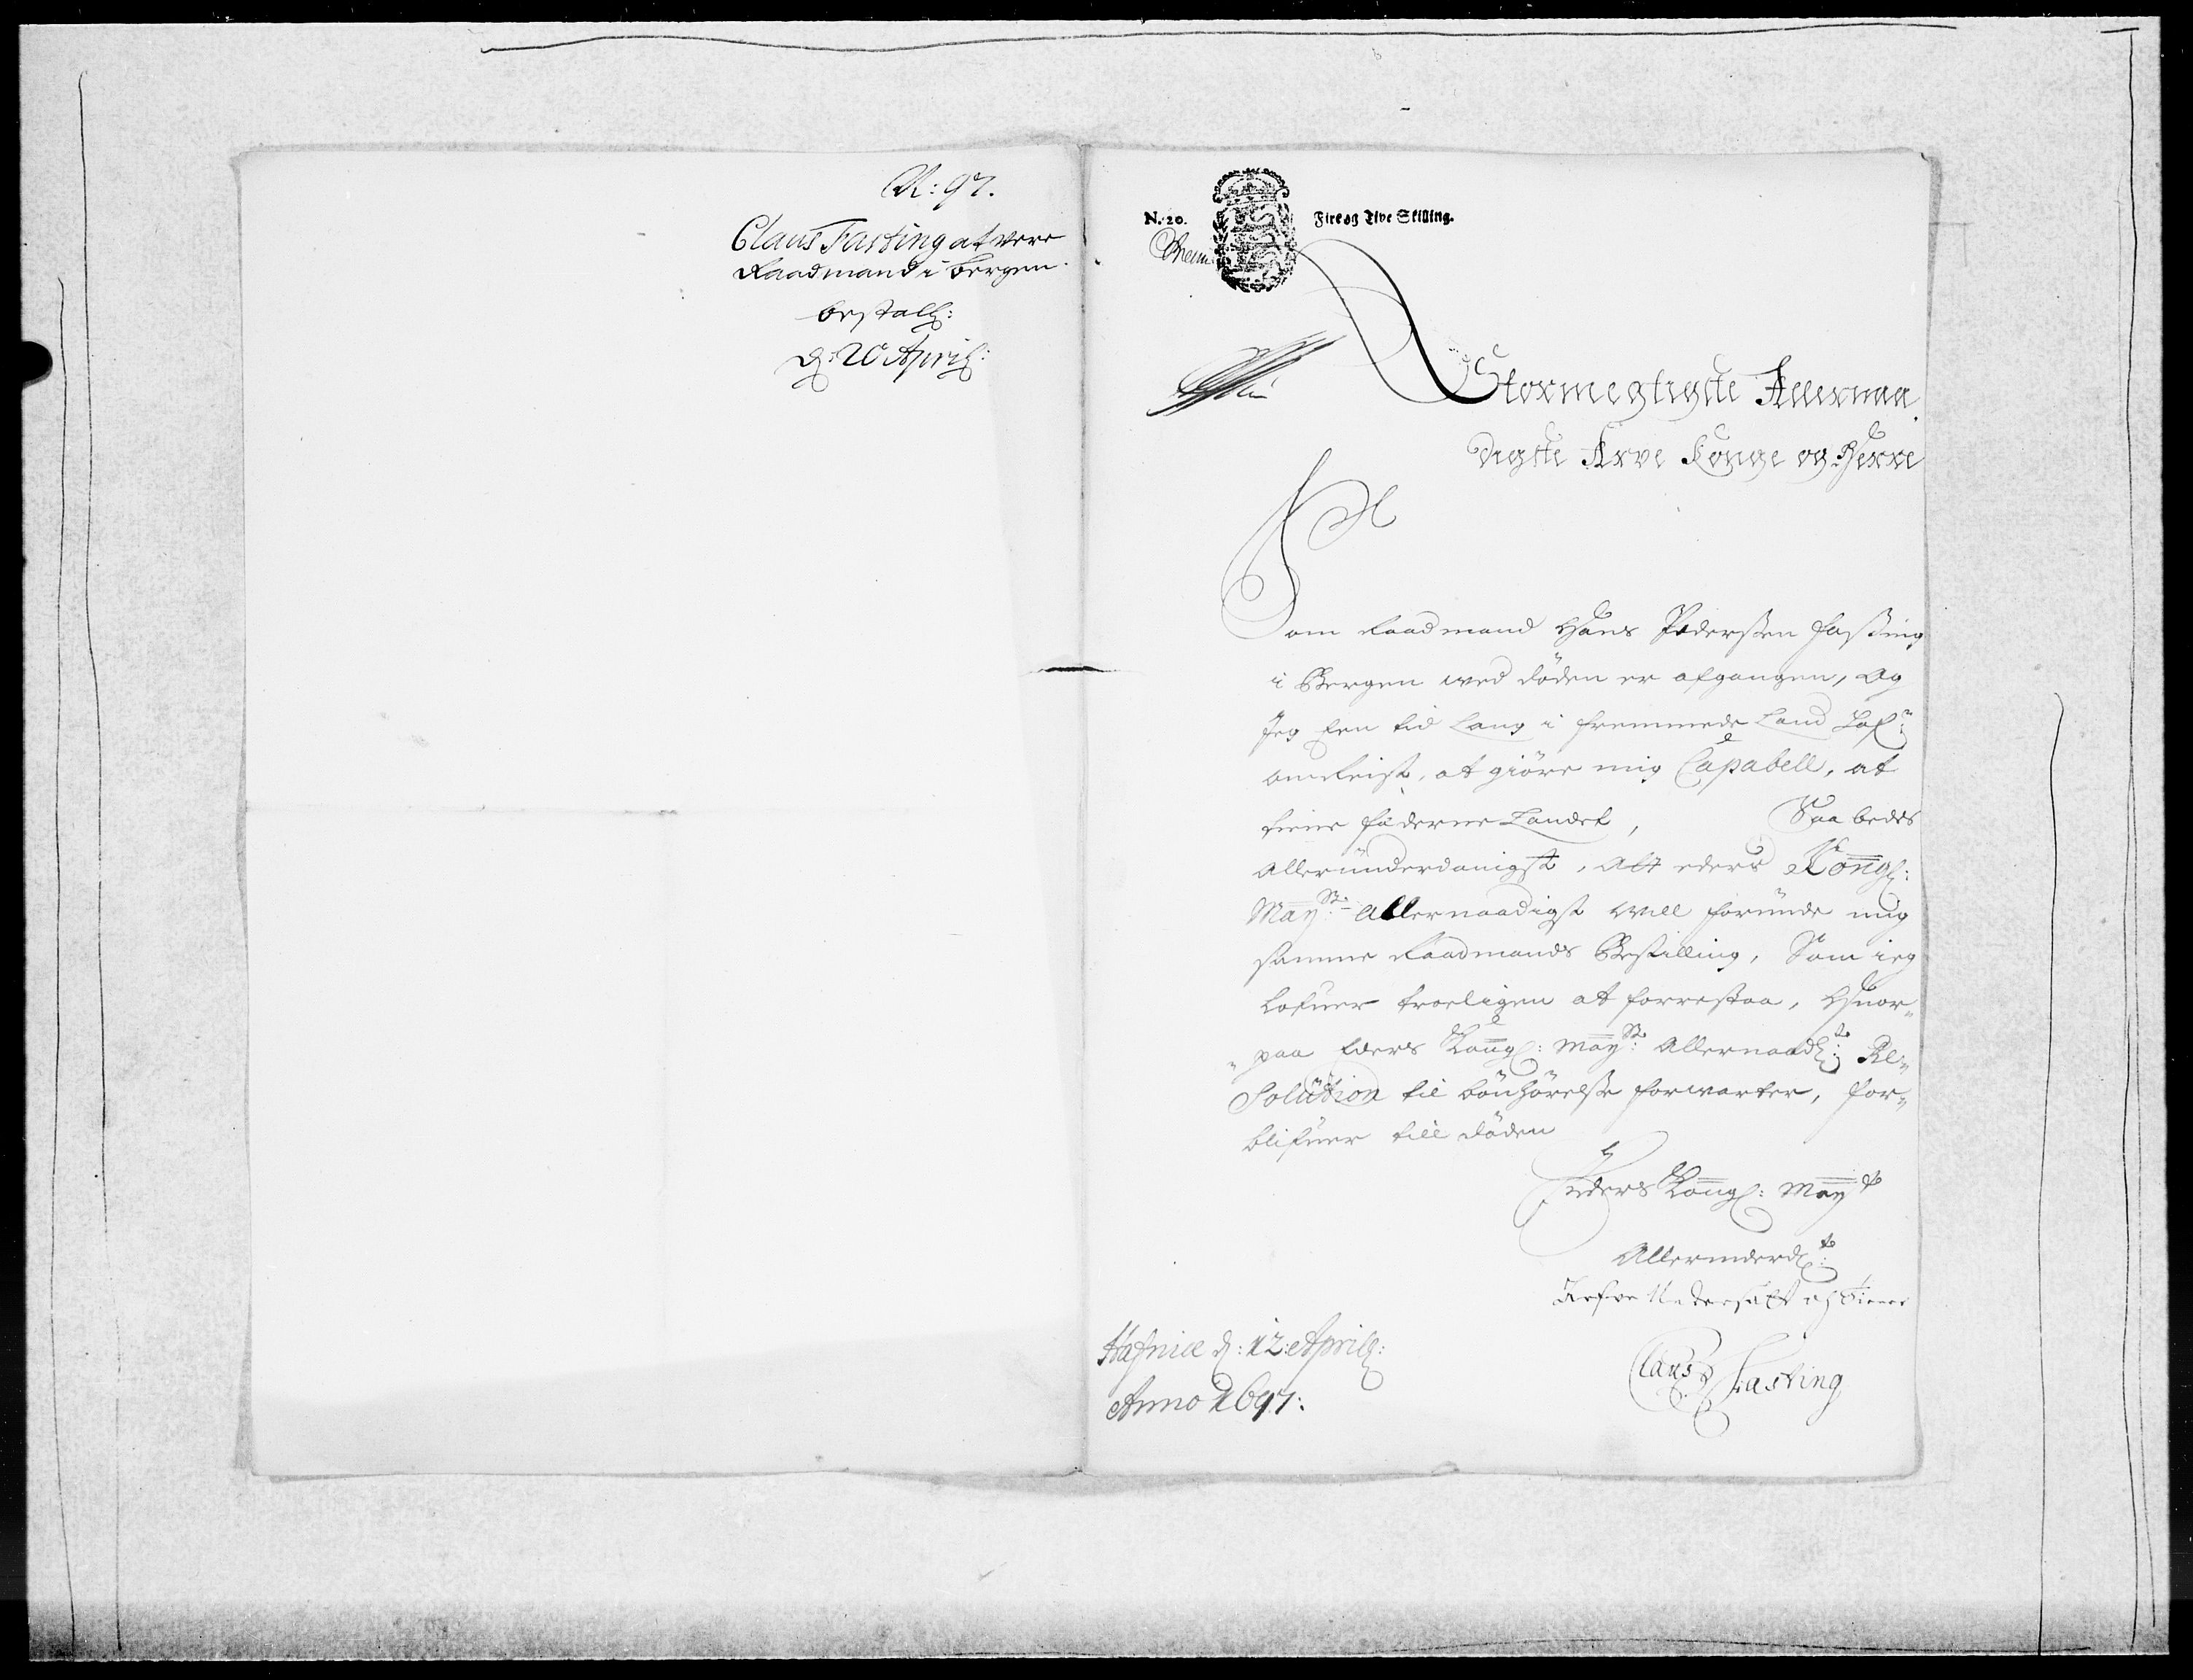 N: 97.
Claus Fasting at vere
Raadmand i Bergen.
bestall:
d: 20 April:
N. 20. Fire og Tive Skilling.
Stormegtigste Allernaa
digste Arve Konge og Herre
Som Raadmand Hans Pedersen Fasting
i Bergen ved döden er afgangen, Og
Jeg Een tid lang i fremmede Land haf:r
omreist, at giöre mig Capabell, at
tiene fæderne Landet, Saa bedes
Alleründerdanigst, Att eders Kongl:
May:st Allernaadigst will foründe mig
samme Raadmands Bestilling, Som ieg
lofuer troeligen at forrestaa, Huor„
„paa Eders Kongl: May:st Allernaad:ste Re„
Solution til bönhörelse forwarter, for„
blifuer till döden
Eders Kongl: May:ts
Allerunderd:ste
Arfve Undersaatt og Tiener
Claus Fasting
Hafniæ d: 12: April:
Anno 1697: